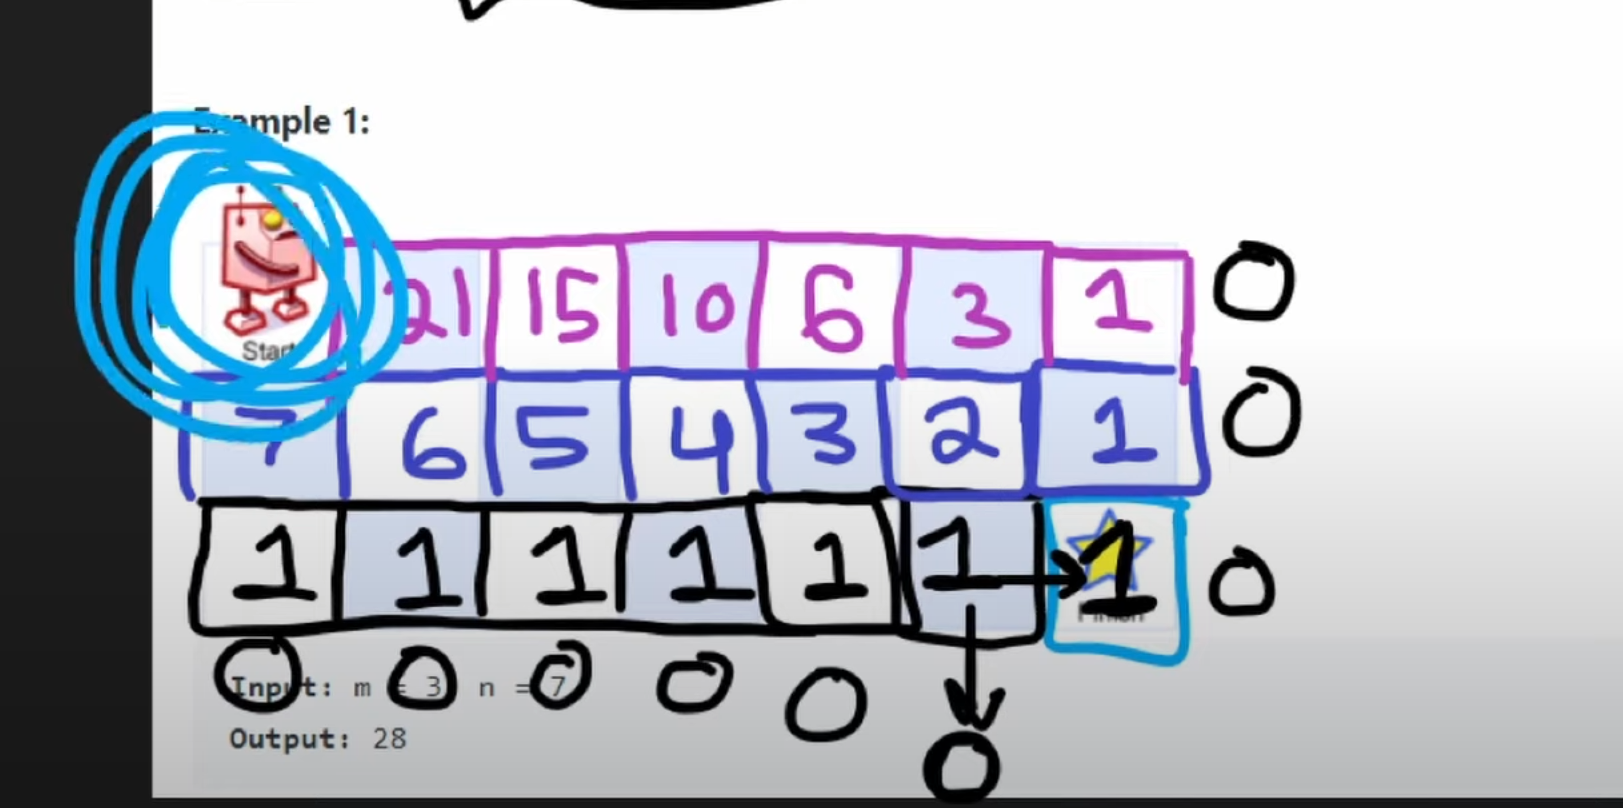 Example 1:
21 15 10 6 3 1 0
Start
7 6 5 4 3 2 1 0
1 1 1 1 1 1 1 0
Finish
0 0 0 0 0 0
Input: m = 3, n = 7
Output: 28